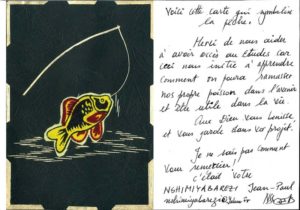 Voilà cette carte qui symbolise
la pêche.
Merci de nous aider
à avoir accès au Etudes car
ceci nous initie à apprendre
comment on poura remasser
nos propre poisson dans l'avenir
et être utile dans la vie.
Que Dieu vous bénisse,
et vous garde dans vos projet.
Je ne sais pas comment
vous remercier!
c'était votre
NSHIMIYABAREZI Jean-Paul
nshimiyabarezi@yahoo.fr